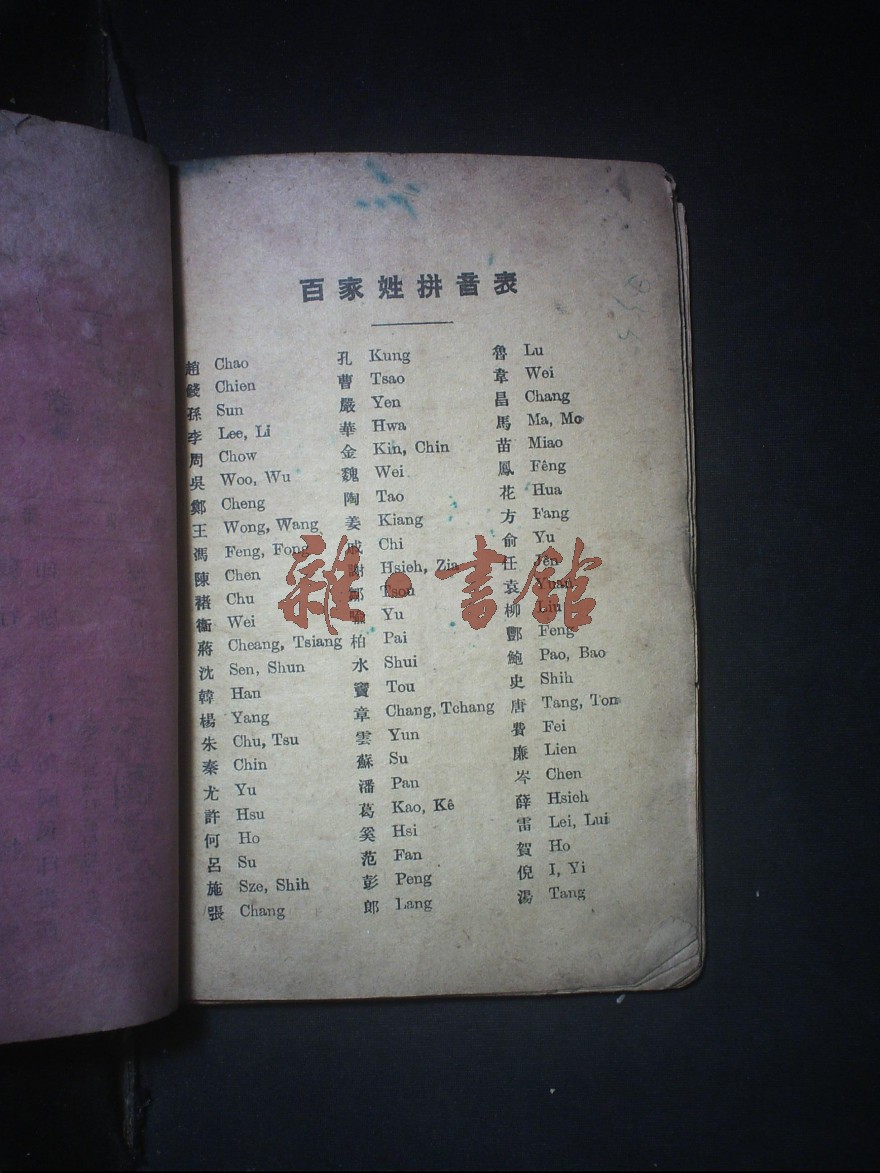 百家姓拼音表
趙 Chao
錢 Chien
孫 Sun
李 Lee, Li
周 Chow
吳 Woo, Wu
鄭 Cheng
王 Wong, Wang
馮 Feng, Fong
陳 Chen
褚 Chu
衞 Wei
蔣 Cheang, Tsiang
沈 Sen, Shun
韓 Han
楊 Yang
朱 Chu, Tsu
秦 Chin
尤 Yu
許 Hsu
何 Ho
呂 Su
施 Sze, Shih
張 Chang
孔 Kung
曹 Tsao
嚴 Yen
華 Hwa
金 Kin, Chin
魏 Wei
陶 Tao
姜 Kiang
戚 Chi
謝 Hsieh, Zia
鄒 Tsou
喻 Yu
柏 Pai
水 Shui
竇 Tou
章 Chang, Tchang
雲 Yun
蘇 Su
潘 Pan
葛 Kao, Kê
奚 Hsi
范 Fan
彭 Peng
郎 Lang
魯 Lu
韋 Wei
昌 Chang
馬 Ma, Mo
苗 Miao
鳳 Fêng
花 Hua
方 Fang
俞 Yu
任 Jên
袁 Yuan
柳 Liu
酆 Feng
鮑 Pao, Bao
史 Shih
唐 Tang, Ton
費 Fei
廉 Lien
岑 Chen
薛 Hsieh
雷 Lei, Lui
賀 Ho
倪 I, Yi
湯 Tang
雜·書館